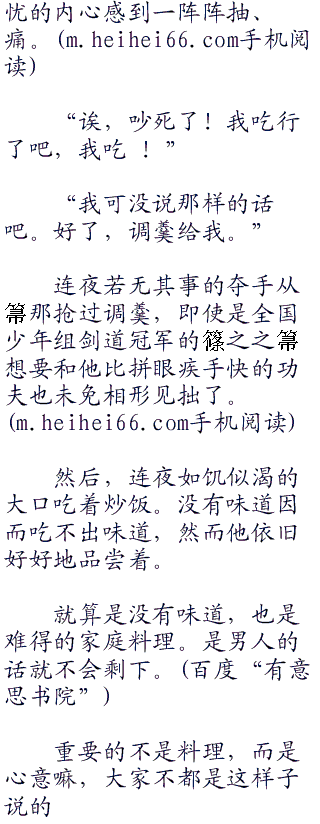 忧的内心感到一阵阵抽、
痛。(m.heihei66.com手机阅
读)
“诶，吵死了！我吃行
了吧，我吃 ！”
“我可没说那样的话
吧。好了，调羹给我。”
连夜若无其事的夺手从
箒那抢过调羹，即使是全国
少年组剑道冠军的篠之之箒
想要和他比拼眼疾手快的功
夫也未免相形见拙了。
(m.heihei66.com手机阅读)
然后，连夜如饥似渴的
大口吃着炒饭。没有味道因
而吃不出味道，然而他依旧
好好地品尝着。
就算是没有味道，也是
难得的家庭料理。是男人的
话就不会剩下。(百度“有意
思书院”)
重要的不是料理，而是
心意嘛，大家不都是这样子
说的